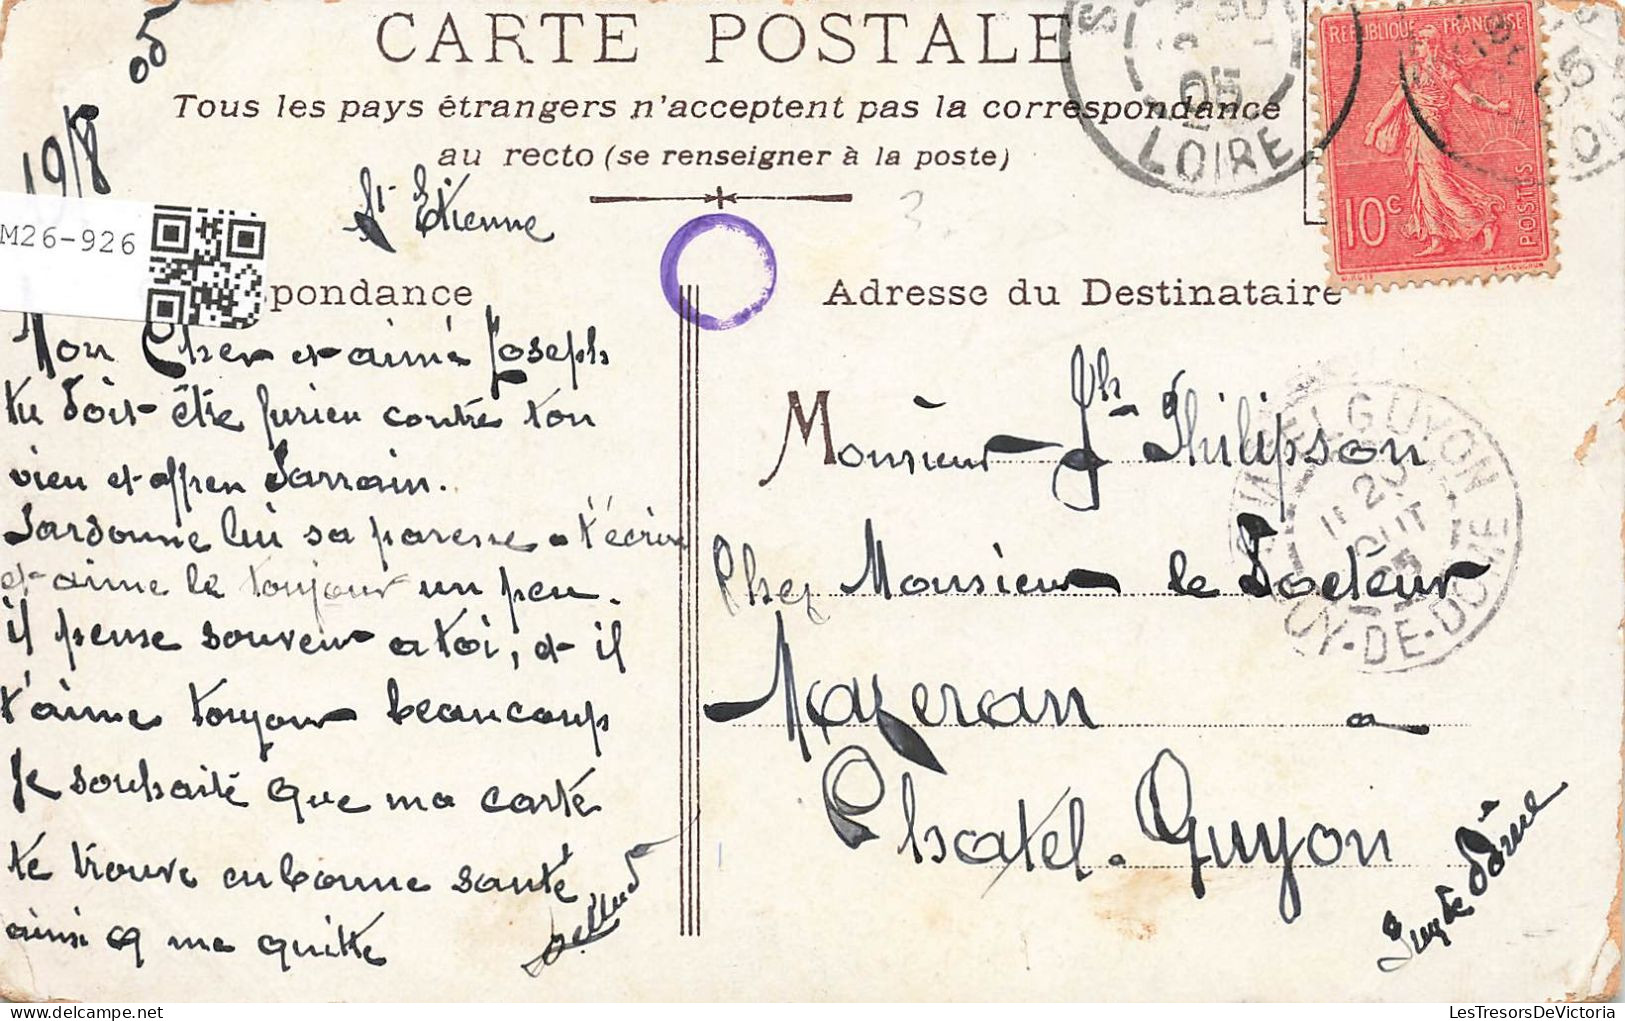 CARTE POSTALE
Tous les pays étrangers n'acceptent pas la correspondance
au recto (se renseigner à la poste)
05
19/8
St Etienne
M26-926
pondance
Mon Cher et aimé Joseph
tu dois être furieu contre ton
vieu et affreu Sarrain.
Pardonne lui sa paresse a t'écrire
et aime le toujour un peu.
il pense souvent a toi, et il
t'aime toujour beaucoup
Je souhaite que ma carte
te trouve en bonne santé
ainsi q me quitte
Adresse du Destinataire
Monsieur Jh Philipson
Chez Monsieur le Docteur
Mazeran a
Chatel-Guyon
Puy de Dôme
REPUBLIQUE FRANÇAISE
10c
POSTES
05
LOIRE
05
LOI
CHATEL GUYON
11 23
AOUT
05
PUY-DE-DOME
LesTresorsDeVictoria.com